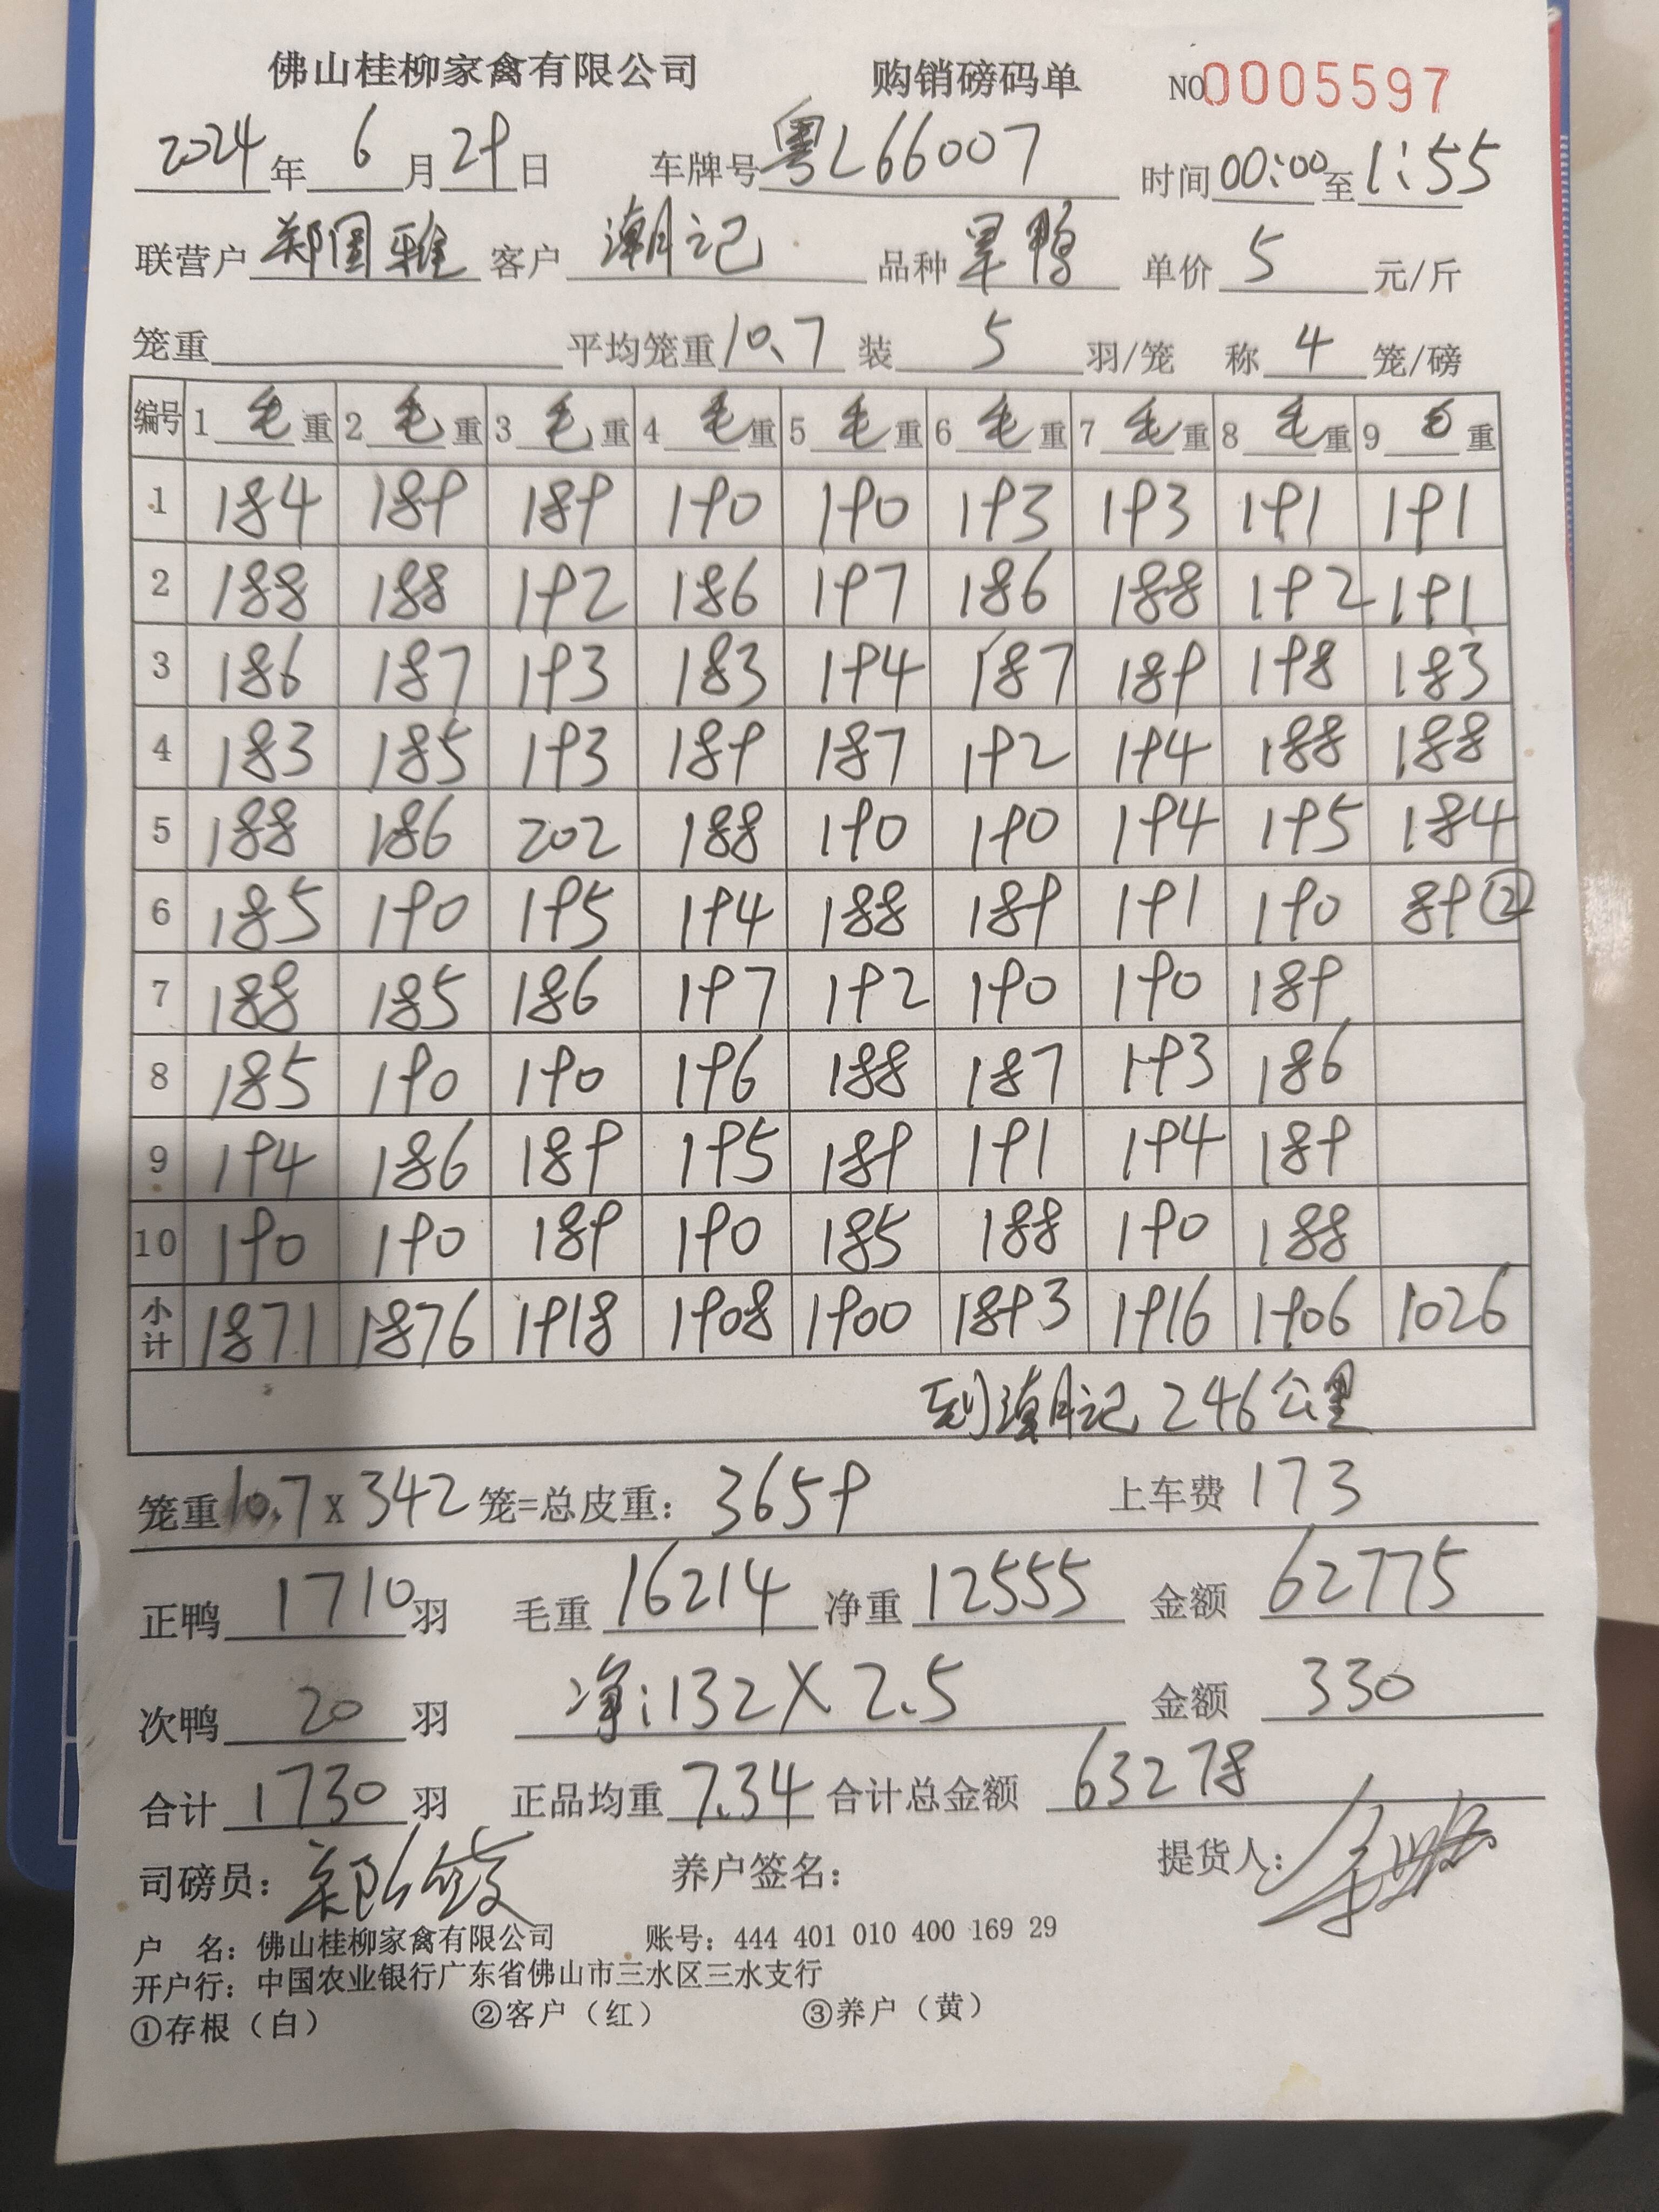 佛山桂柳家禽有限公司 购销磅码单 NO0005597
2024年6月29日 车牌号粤L66007 时间00:00至1:55
联营户郑国雅 客户潮记 品种旱鸭 单价5元/斤
笼重 平均笼重10.7 装5羽/笼 称4笼/磅
编号 1毛重 2毛重 3毛重 4毛重 5毛重 6毛重 7毛重 8毛重 9毛重
1 184 189 189 190 190 193 193 191 191
2 188 188 192 186 197 186 188 192 191
3 186 187 193 183 194 187 189 198 183
4 183 185 193 189 187 192 194 188 188
5 188 186 202 188 190 190 194 195 184
6 185 190 195 194 188 189 191 190 89②
7 188 185 186 197 192 190 190 189
8 185 190 190 196 188 187 193 186
9 194 186 189 195 189 191 194 189
10 190 190 189 190 185 188 190 188
小计 1871 1876 1918 1908 1900 1893 1916 1906 1026
到潮记246公里
笼重10.7X342笼=总皮重：3659 上车费173
正鸭1710羽 毛重16214 净重12555 金额62775
次鸭20羽 净:132X2.5 金额330
合计1730羽 正品均重7.34 合计总金额63278
司磅员： 养户签名： 提货人：
户 名：佛山桂柳家禽有限公司 账号：444 401 010 400 169 29
开户行：中国农业银行广东省佛山市三水区三水支行
①存根（白） ②客户（红） ③养户（黄）